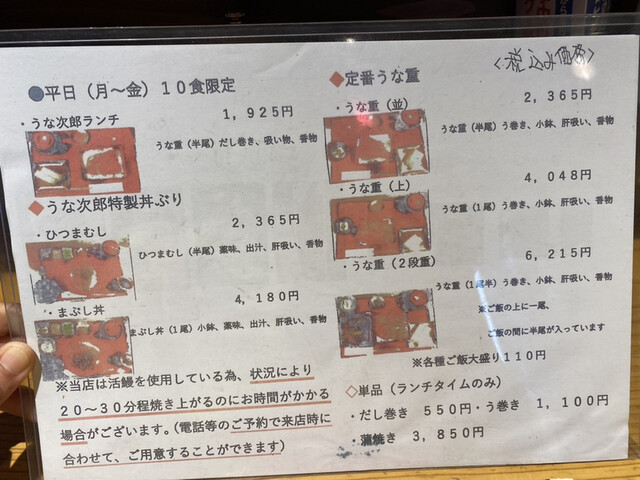 ●平日（月～金）１０食限定
・うな次郎ランチ
１，９２５円
うな重（半尾）だし巻き、吸い物、香物
◆うな次郎特製丼ぶり
・ひつまむし
２，３６５円
ひつまむし（半尾）薬味、出汁、肝吸い、香物
・まぶし丼
４，１８０円
まぶし丼（１尾）小鉢、薬味、出汁、肝吸い、香物
※当店は活鰻を使用している為、状況により
２０～３０分程焼き上がるのにお時間がかかる
場合がございます。（電話等のご予約で来店時に
合わせて、ご用意することができます）
＜税込み価格＞
◆定番うな重
・うな重（並）
２，３６５円
うな重（半尾）う巻き、小鉢、肝吸い、香物
・うな重（上）
４，０４８円
うな重（１尾）う巻き、小鉢、肝吸い、香物
・うな重（２段重）
６，２１５円
うな重（１尾半）う巻き、小鉢、肝吸い、香物
※ご飯の上に一尾、
ご飯の間に半尾が入っています
※各種ご飯大盛り１１０円
◇単品（ランチタイムのみ）
・だし巻き　５５０円・う巻き　１，１００円
・蒲焼き　３，８５０円